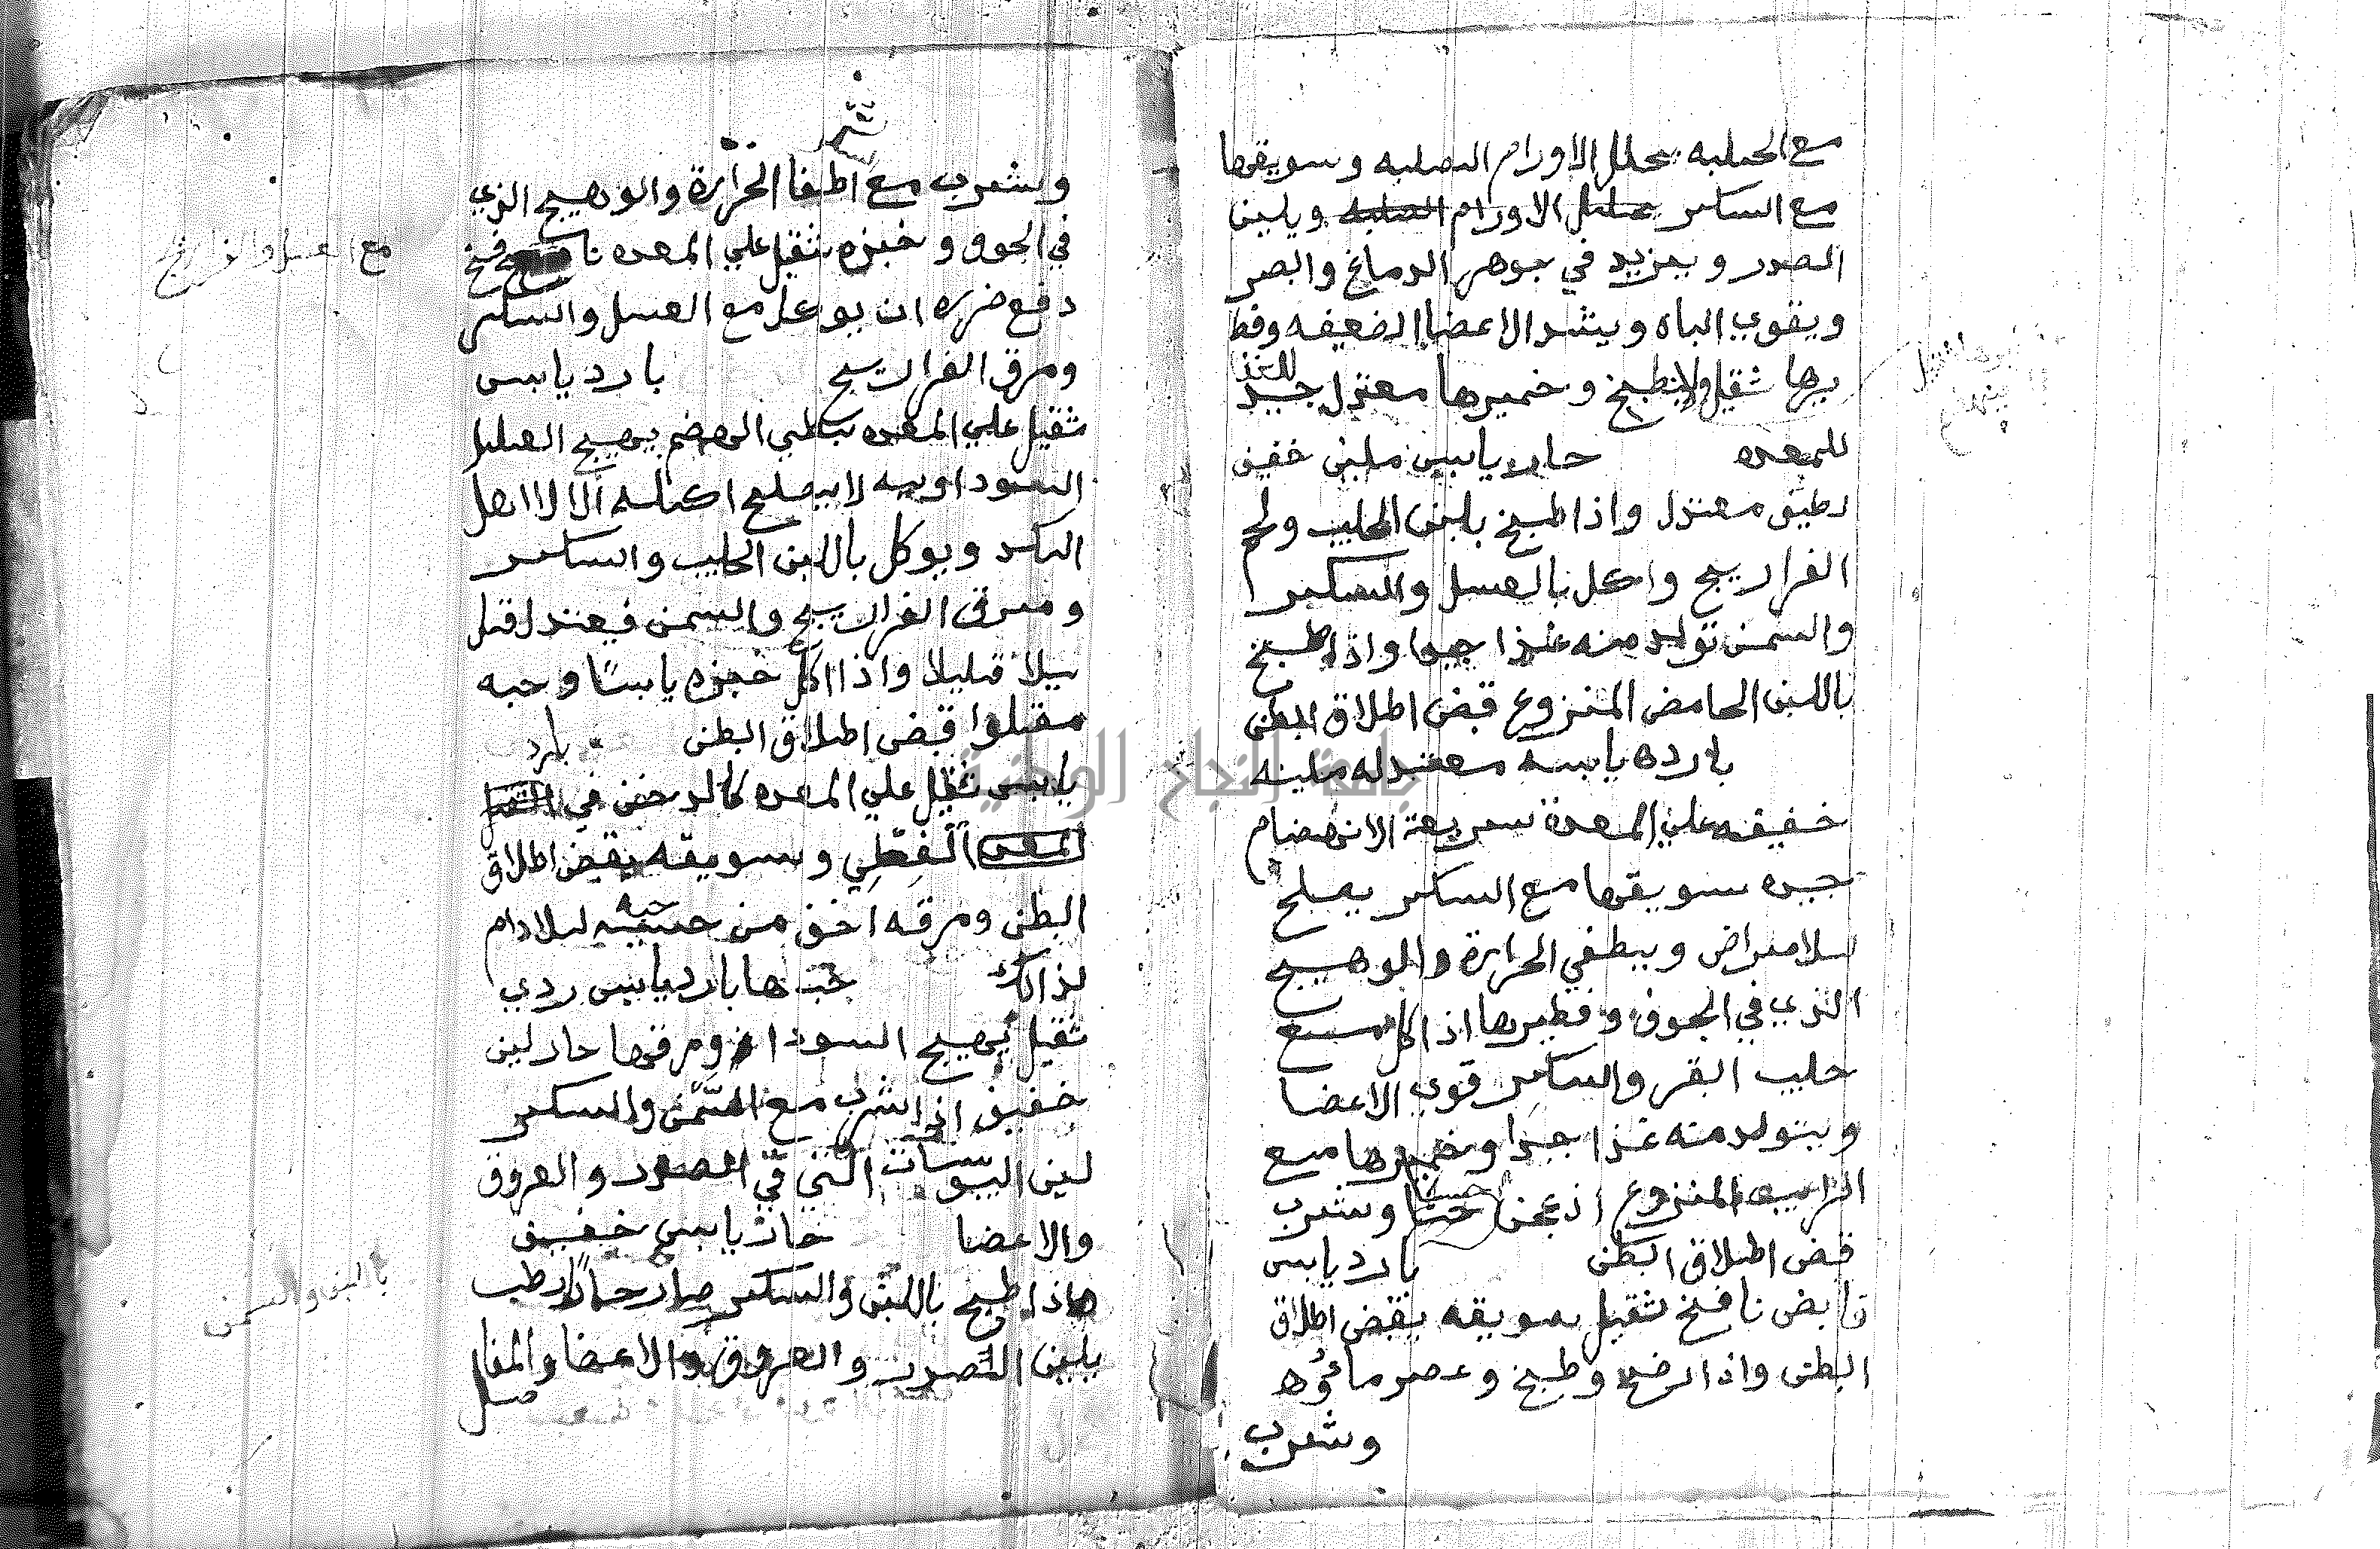 مع الحلبه يحلل الاورام الصلبه وسويقها
مع السكر يحلل الاورام الصلبه ويلين
الصدر ويزيد في جوهر الدماغ والبصر
ويقوي الباه ويشد الاعضا الضعيفه وفط
يرها ثقيل ولا ينطبخ وخميرها معتدل جيد
للمعده حار يابس ملين خفيف
لطيف معتدل واذا طبخ بلبن الحليب ولحم
الفراريج واكل بالعسل والسكر
والسمن تولد منه غذا جيدا واذا طبخ
باللبن الحامض المنزوع قبض اطلاق البطن
بارده يابسه معتدله ملينه
خفيفه علي المعدة سريعة الانهضام
جيده سويقها مع السكر يصلح
للامراض ويطفي الحرارة والوهيج
الذي في الجوف وفطيرها اذا اكل مع
حليب البقر والسكر قوي الاعضا
ويتولد منه غذا جيدا وخميرها مع
الرايب المنزوع اذ عجن حسا وشرب
قبض اطلاق البطن بارد يابس
قابض نافخ ثقيل سويقه يقبض اطلاق
البطن واذا رضخ وطبخ وعصر ماؤه
وشرب
وشرب مع اطفا الحرارة والوهيج الذي
في الجوف وخبزه ثقيل علي المعده نافخ
دفع ضرره ان يوكل مع العسل والسكر
ومرق الفراريج بارد يابس
ثقيل علي المعده بطي الهضم يهيج العلل
السوداويه لا يصلح اكله الا لاهل
الكد ويوكل باللبن الحليب والسكر
ومرق الفراريج والسمن فيعتدل قليلا
قليلا واذا اكل خبزه يابسا وحبه
مقلوا قبض اطلاق البطن بارد
يابس ثقيل علي المعده كالدخن في الثقل
المعده الفعلي وسويقه يقبض اطلاق
البطن ومرقه اخف من حبه
لذالك خبزها بارد يابس ردي
ثقيل يهيج السودا ومرقها حار لين
خفيف اذا شرب مع السمن والسكر
لين اليبوسات التي في الصدر والعروق
والاعضا حار يابس خفيف
واذا طبخ باللبن والسكر صار حارا رطب
يلين الصدر والعروق والاعضا والمفا
صل
مع العسل والفراريج
باللبن والسمن
جامعة النجاح الوطنية